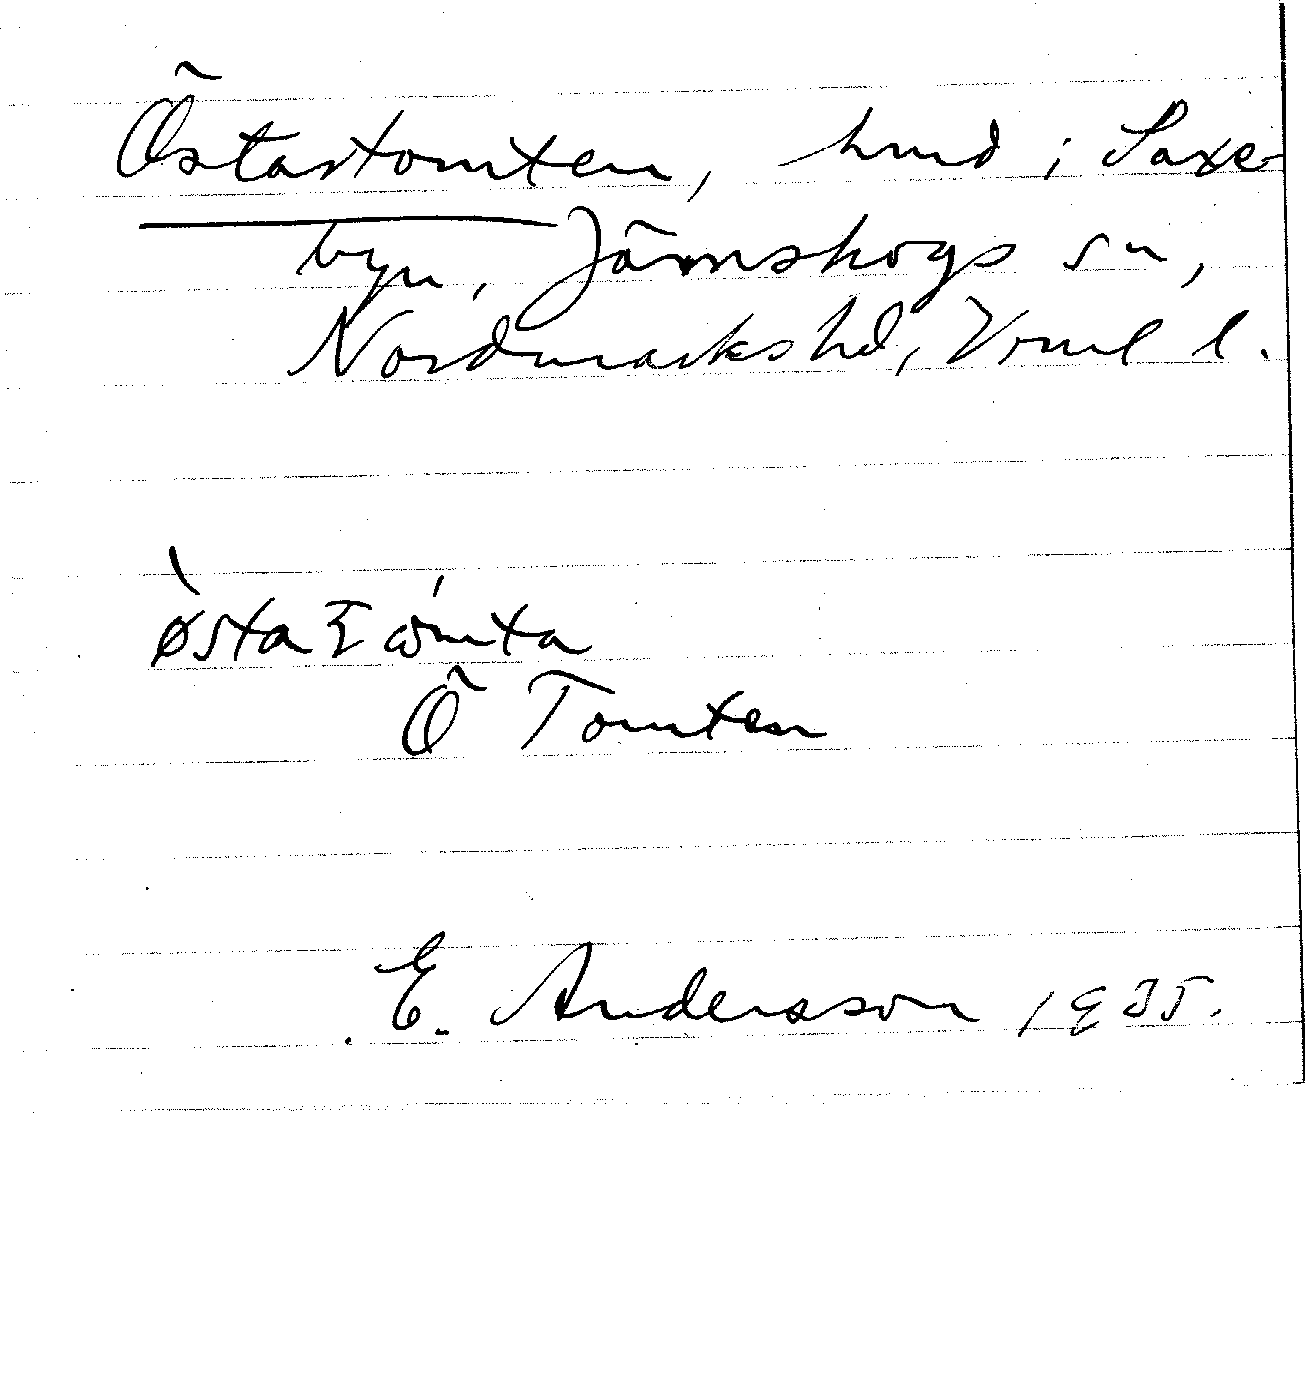 Östartomten, hmd i Saxe-
byn, Järnskogs sn,
Nordmarks hd, Vrml l.
østa tómta
Ö Tomten
E. Andersson 1935.